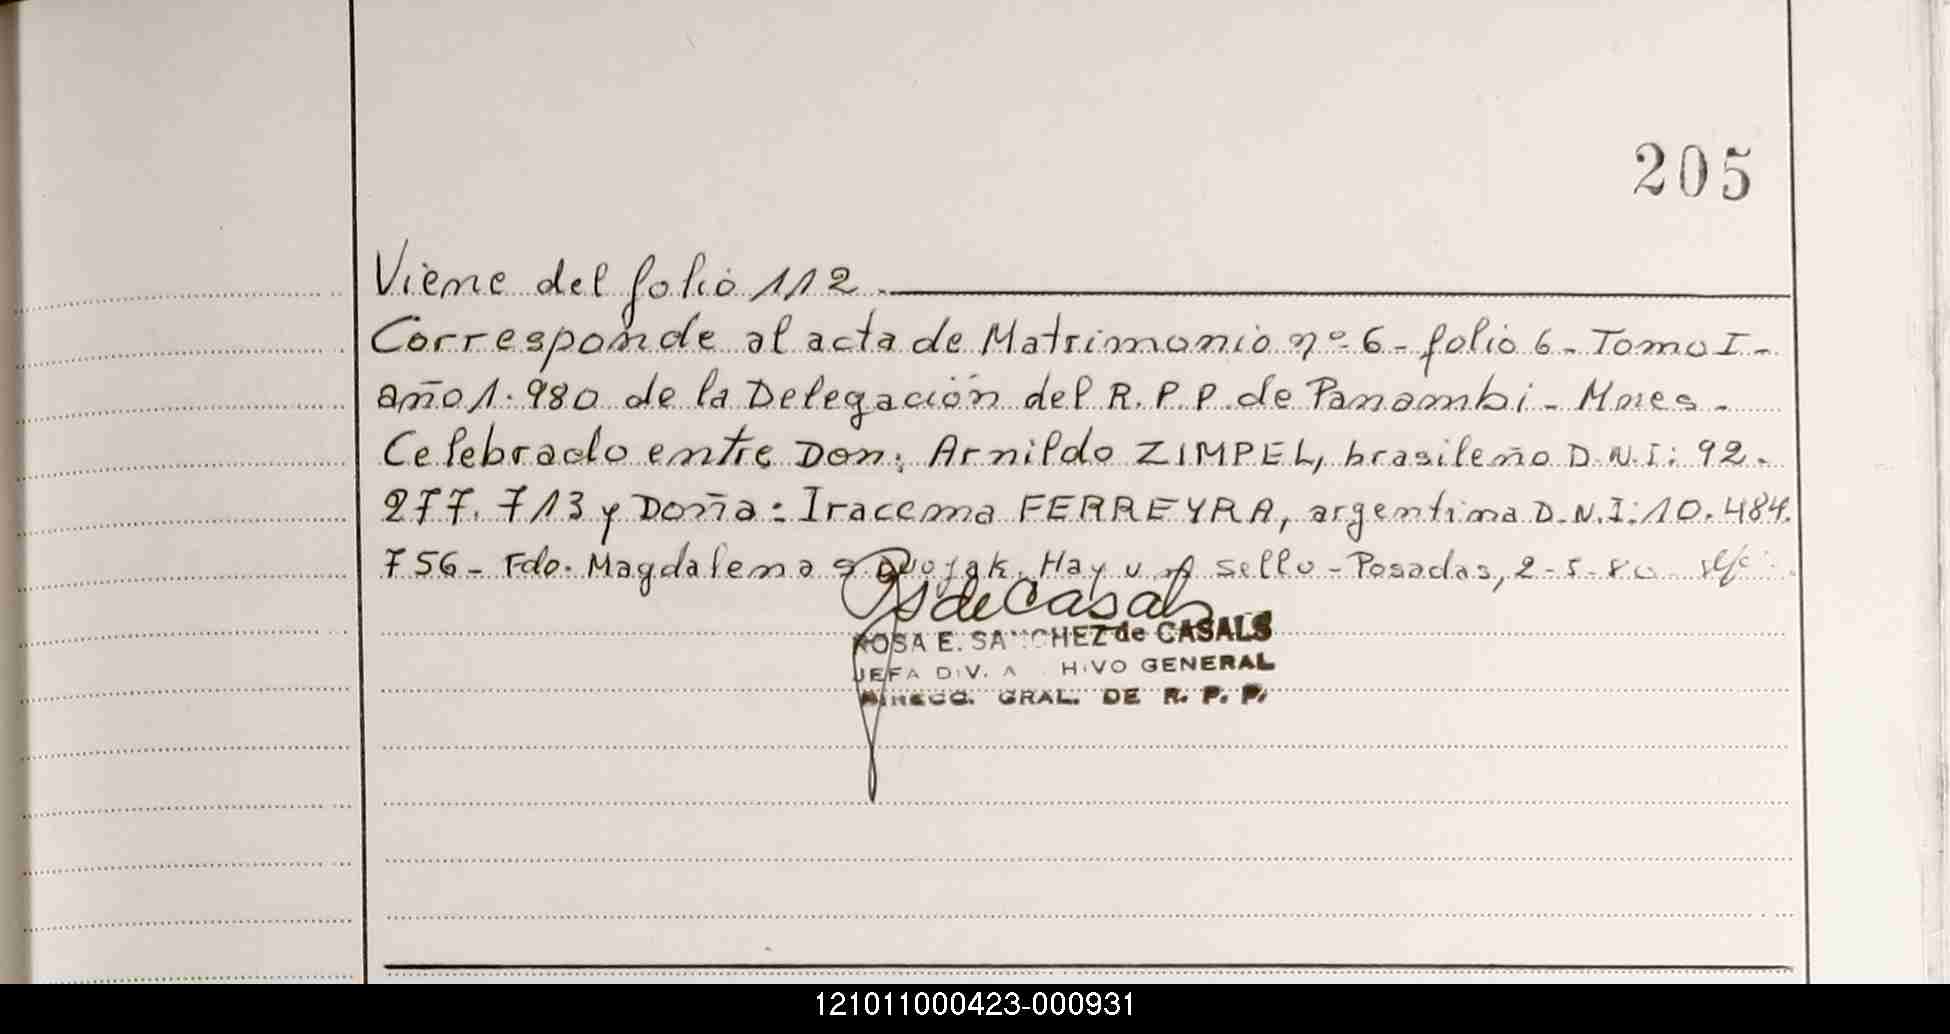 205
Viene del folio 112.
Corresponde al acta de Matrimonio nº 6 - folio 6 - Tomo I -
año 1.980 de la Delegación del R.P.P. de Panambi - Mnes -
Celebrado entre Don: Arnildo ZIMPEL, brasileño D.N.I: 92.
277.713 y Doña: Iracema FERREYRA, argentina D.N.I: 10.484.
756 - Fdo. Magdalena Dvojak. Hay un sello - Posadas, 2-5-80
ROSA E. SANCHEZ de CASALS
JEFA DIV. A HIVO GENERAL
DIRECC. GRAL. DE R. P. P.
121011000423-000931